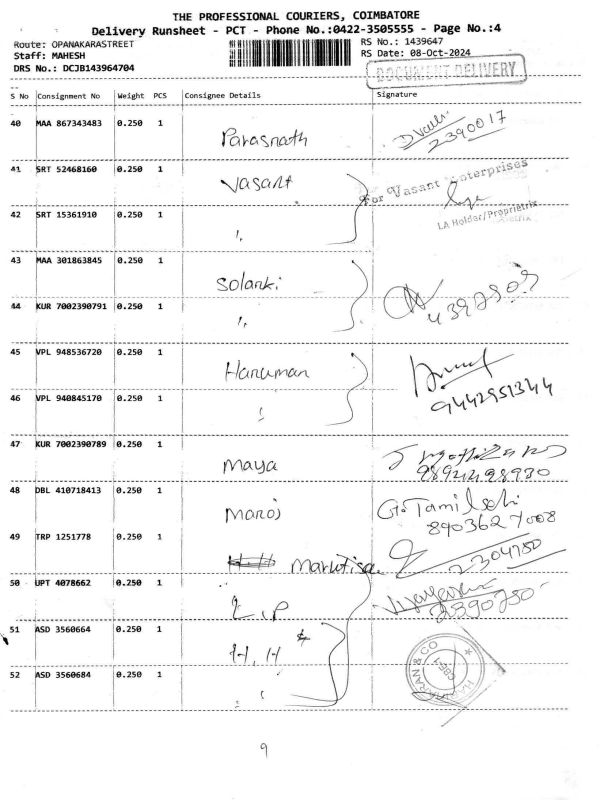 THE PROFESSIONAL COURIERS, COIMBATORE
Delivery Runsheet - PCT - Phone No.:0422-3505555 - Page No.:4
Route: OPANAKARASTREET RS No.: 1439647
Staff: MAHESH RS Date: 08-Oct-2024
DRS No.: DCJB143964704 DOCUMENT DELIVERY
S No Consignment No Weight PCS Consignee Details Signature
40 MAA 867343483 0.250 1 Parasnath 2390017
41 SRT 52468160 0.250 1 Vasant For Vasant Enterprises
42 SRT 15361910 0.250 1 ,, LA Holder/Proprietrix
43 MAA 301863845 0.250 1 Solanki
44 KUR 7002390791 0.250 1 ,, 4392909
45 VPL 948536720 0.250 1 Hanuman
46 VPL 940845170 0.250 1 ,, 9442951344
47 KUR 7002390789 0.250 1 Maya 9894498930
48 DBL 410718413 0.250 1 Manoj G. Tamilselvi 8903627008
49 TRP 1251778 0.250 1 2304750
50 UPT 4078662 0.250 1 2390250
51 ASD 3560664 0.250 1 H. H
52 ASD 3560684 0.250 1 ,, & CO
9